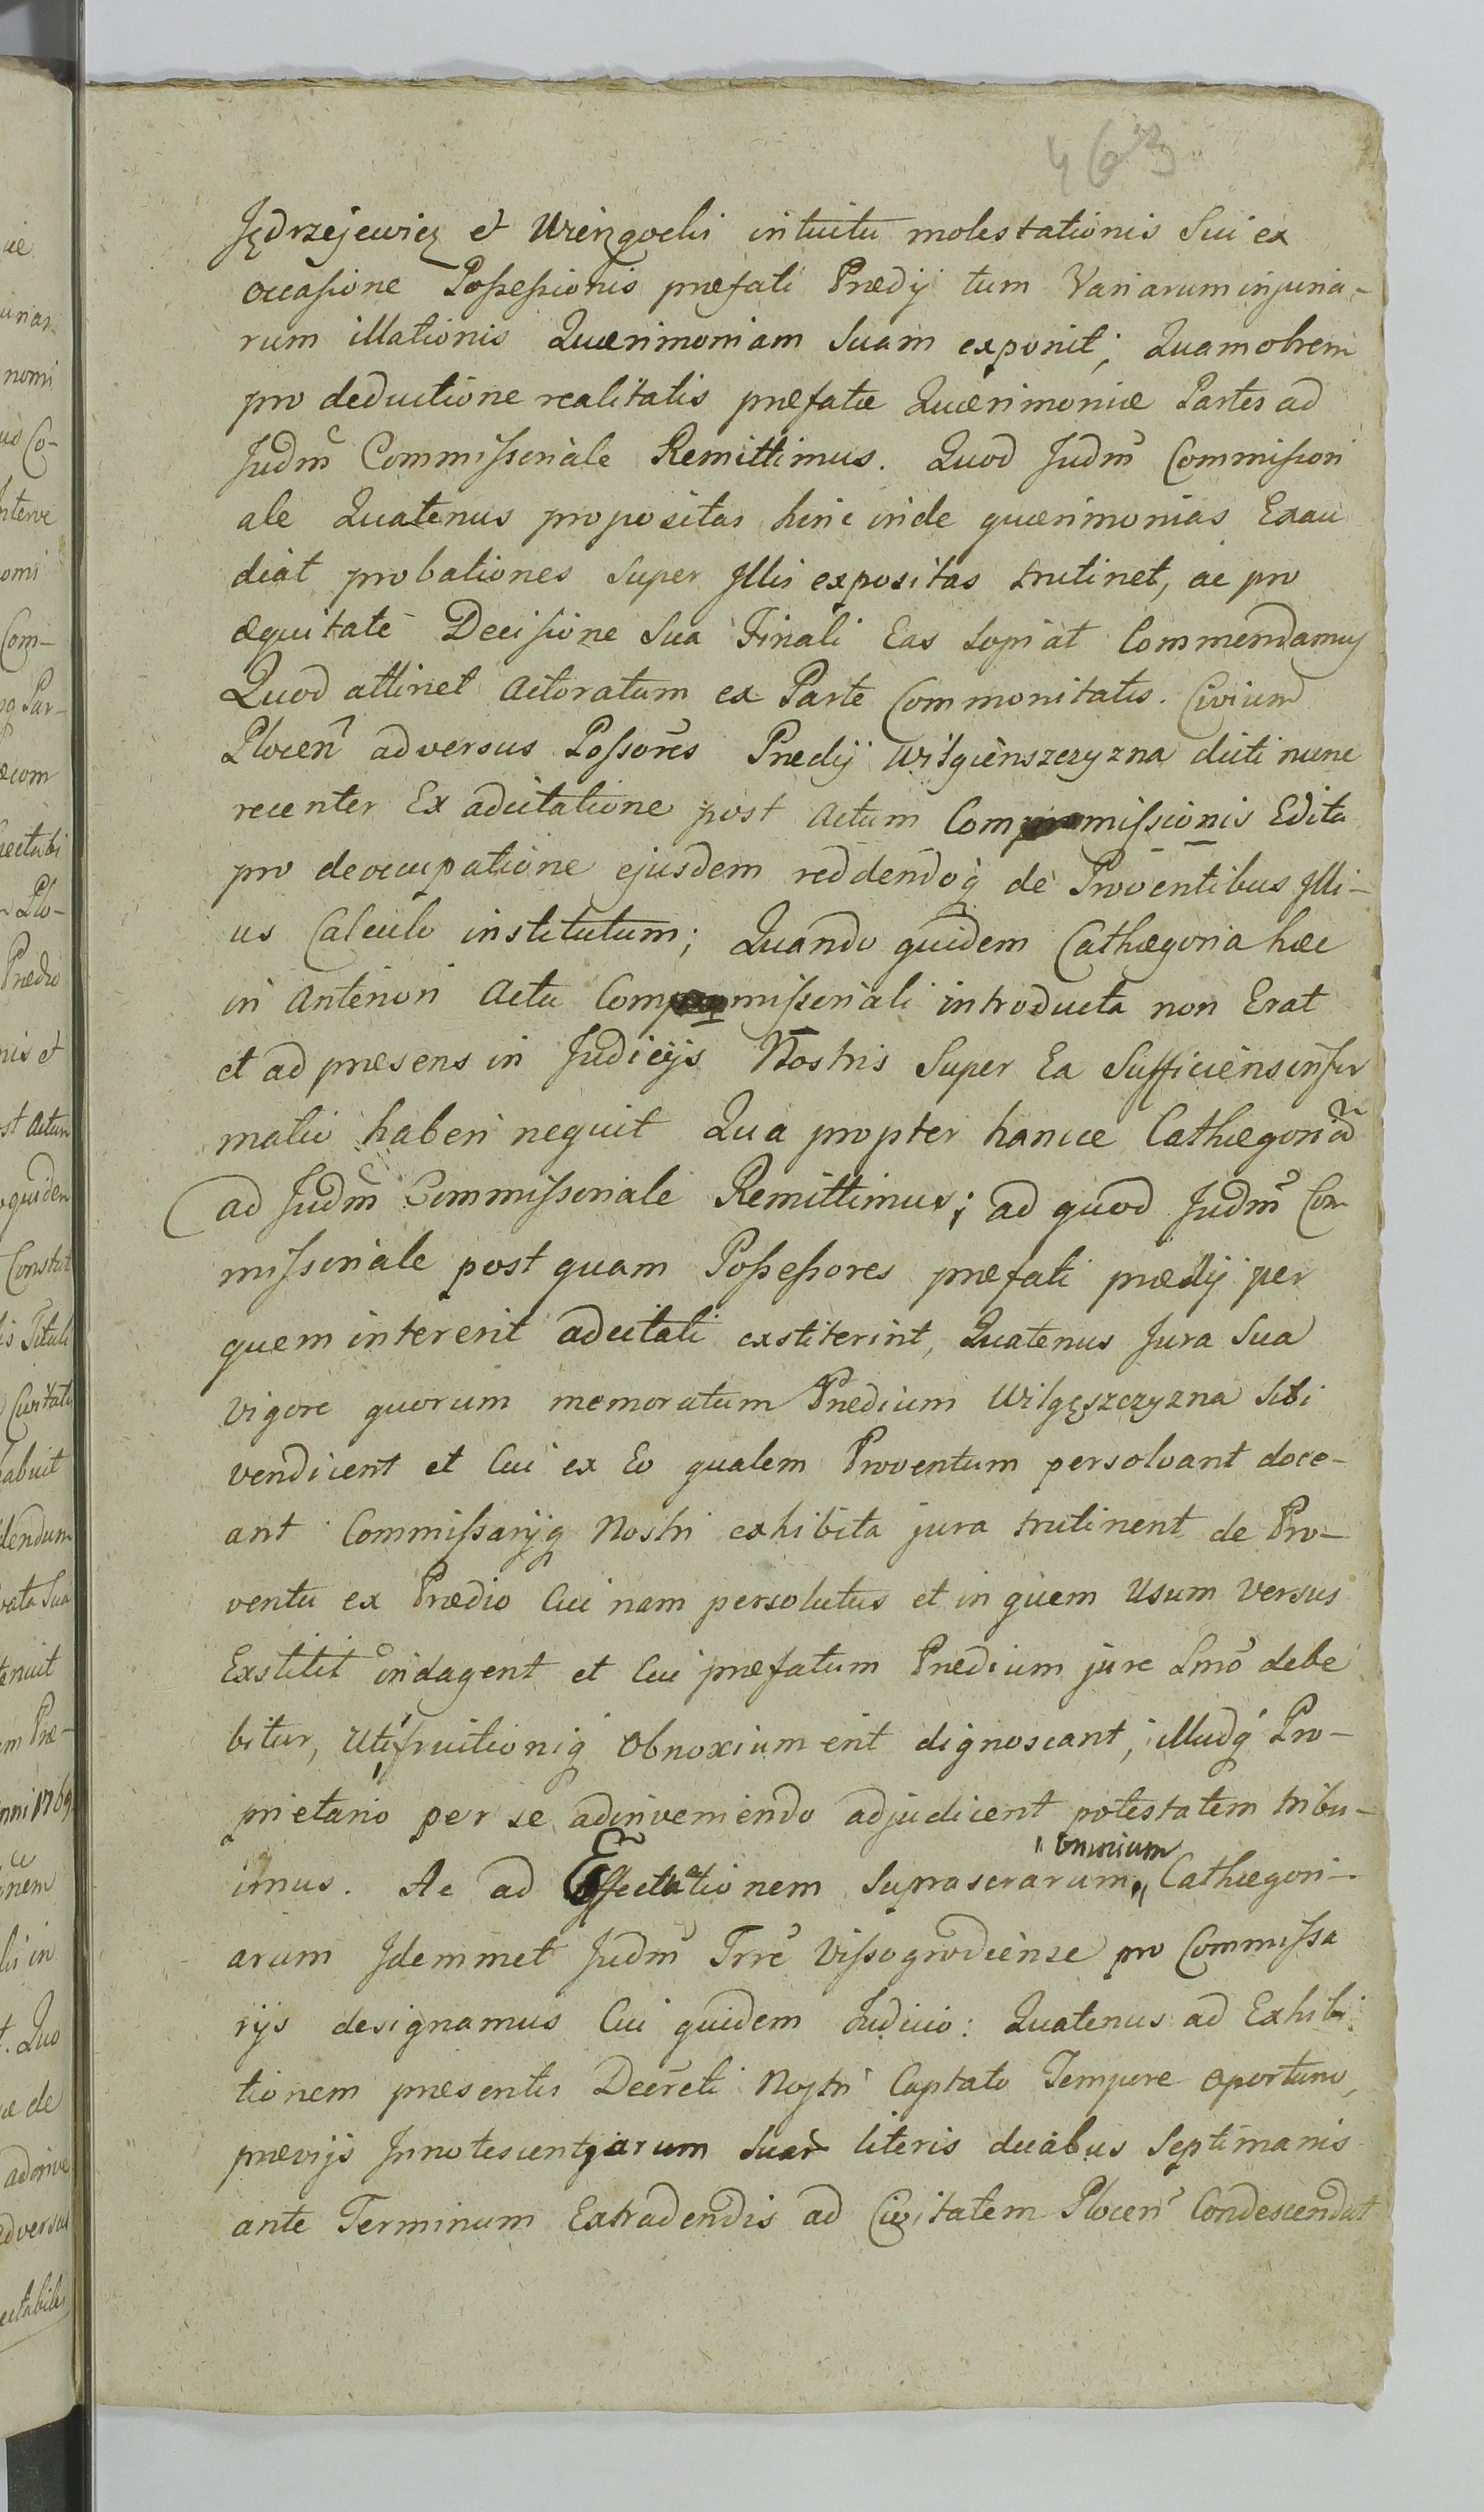 463
Jędrzejewicz et Węzygvelis intuitu molestationis Sui ex
occasione Possessionis præfati Prædij tum Variarum injuria-
rum illationis Quærimoniam Suam exponit; Quamobrem
pro deductione realitatis præfatæ Quærimoniæ Partes ad
Judm̃ Commissoriale Remittimus. Quod Judm̃ Commissori
ale Quatenus propositas hinc inde quærimonias Exau
diat probationes super Illis expositas trutinet, ac pro
æquitate Decisione Sua Finali Eas sopiat Commendamus
Quod attinet Actoratum ex Parte Commonitatis. Civium
Plocen̄ adversus Possor̃es Prædij Wilgienszczyzna dicti nunc
recenter Ex adcitatione post Actum Commissionis Edita
pro deoccupatione ejusdem reddendoq̀ de Proventibus Illi-
us Calculo institutum; Quando quidem Cathægoria hæc
in Anteriori Actu Commissoriali introducta non Erat
et ad præsens in Judicijs Nostris Super Ea Sufficiens infor
matio haberi nequit Qua propter hancce Cathægoriã
ad Judm̃ Commissoriale Remittimus; ad quod Judm̃ Com
missoriale post quam Possessores præfati prædij per
quem intererit adcitati exstiterint, Quatenus Jura Sua
vigore quorum memoratum Prædium Wilgęszczyzna Sibi
vendicent et Cui ex Eo qualem Proventum persolvant doce-
ant Commissarijq Nostri exhibita jura trutinent de Pro-
ventu ex Prædio Cui nam persolutus et in quem Usum versus
Exstitit indagent et Cui præfatum Prædium jure Smõ debe
bitur, Utifruitioniq́ Obnoxium erit dignoscant, illudq́ Pro-
prietario per se adinveniendo adjudicent potestatem tribu-
imus. Ac ad Effectuationem Suprascrarum omnium Cathægori-
arum Idemmet Judm̃ Trrẽ Vissogrodiense pro Commissa
rijs designamus Cui quidem Judicio: Quatenus ad Exhibi
tionem præsentis Decreti Nostri Captato Tempore Oportuno,
prævijs Innotescentiarum Suar̃ literis duabus Septimanis
ante Terminum Extradendis ad Civitatem Plocen̄ Condescendat